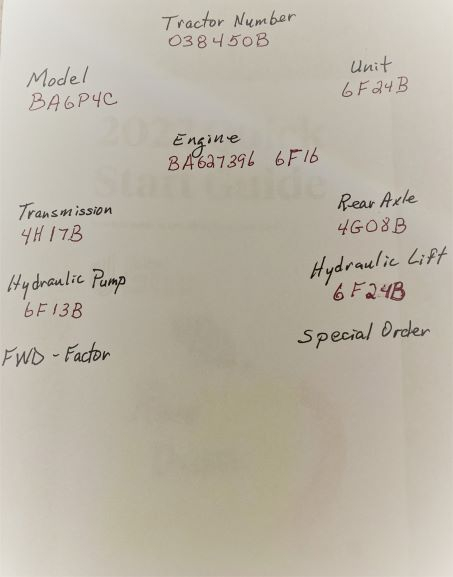 Tractor Number
038450B
Model
BA6P4C
Unit
6F24B
Engine
BA627396 6F16
Transmission
4H17B
Rear Axle
4G08B
Hydraulic Pump
6F13B
Hydraulic Lift
6F24B
FWD - Factor
Special Order
Start Guide